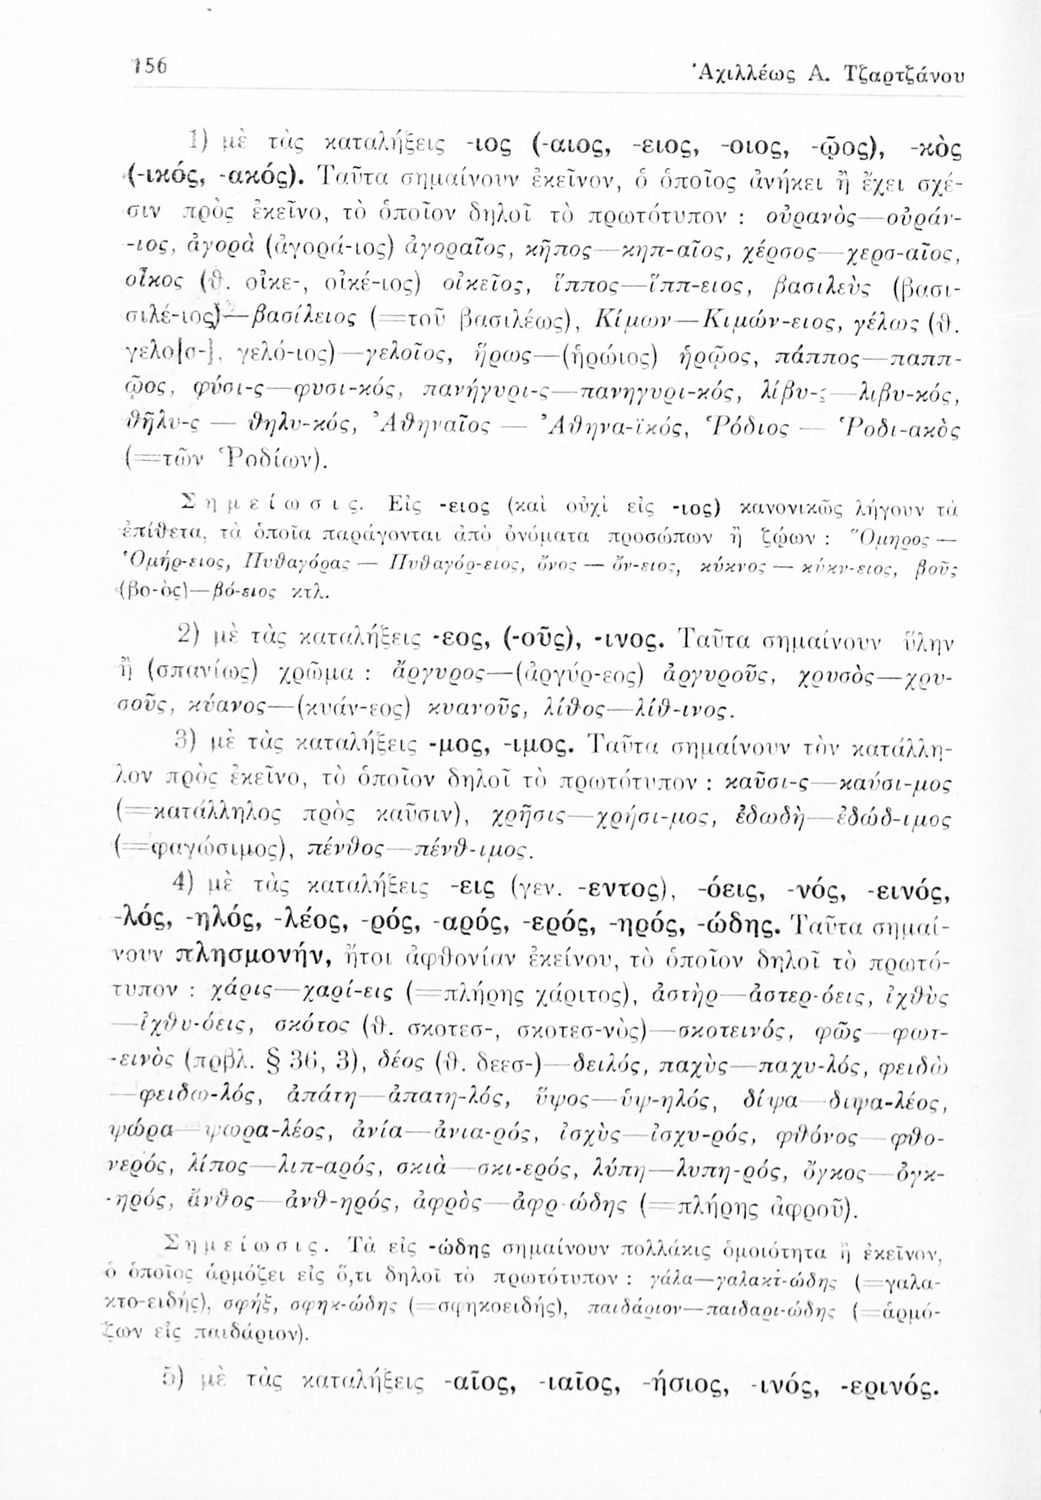 156
Ἀχιλλέως Α. Τζαρτζάνου
1) μὲ τὰς καταλήξεις -ιος (-αιος, -ειος, -οιος, -ῷος), -κὸς
(-ικός, -ακός). Ταῦτα σημαίνουν ἐκεῖνον, ὁ ὁποῖος ἀνήκει ἢ ἔχει σχέ-
σιν πρὸς ἐκεῖνο, τὸ ὁποῖον δηλοῖ τὸ πρωτότυπον : οὐρανὸς—οὐράν-
-ιος, ἀγορὰ (ἀγορά-ιος) ἀγοραῖος, κῆπος—κηπ-αῖος, χέρσος—χερσ-αῖος,
οἶκος (θ. οἰκε-, οἰκέ-ιος) οἰκεῖος, ἵππος—ἵππ-ειος, βασιλεὺς (βασι-
σιλέ-ιος)—βασίλειος (=τοῦ βασιλέως), Κίμων—Κιμών-ειος, γέλως (θ.
γελο[σ-], γελό-ιος)—γελοῖος, ἥρως—(ἡρώιος) ἡρῷος, πάππος—παππ-
ῷος, φύσι-ς—φυσι-κός, πανήγυρι-ς—πανηγυρι-κός, λίβυ-ς—λιβυ-κός,
θῆλυ-ς — θηλυ-κός, Ἀθηναῖος — Ἀθηνα-ϊκός, Ῥόδιος — Ῥοδι-ακὸς
(=τῶν Ῥοδίων).
Σημείωσις. Εἰς -ειος (καὶ οὐχὶ εἰς -ιος) κανονικῶς λήγουν τὰ
ἐπίθετα, τὰ ὁποῖα παράγονται ἀπὸ ὀνόματα προσώπων ἢ ζῴων : Ὅμηρος —
Ὁμήρ-ειος, Πυθαγόρας — Πυθαγόρ-ειος, ὄνος — ὄν-ειος, κύκνος — κύκν-ειος, βοῦς
(βο-ὸς)—βό-ειος κτλ.
2) μὲ τὰς καταλήξεις -εος, (-οῦς), -ινος. Ταῦτα σημαίνουν ὕλην
ἢ (σπανίως) χρῶμα : ἄργυρος—(ἀργύρ-εος) ἀργυροῦς, χρυσὸς—χρυ-
σοῦς, κύανος—(κυάν-εος) κυανοῦς, λίθος—λίθ-ινος.
3) μὲ τὰς καταλήξεις -μος, -ιμος. Ταῦτα σημαίνουν τὸν κατάλλη-
λον πρὸς ἐκεῖνο, τὸ ὁποῖον δηλοῖ τὸ πρωτότυπον : καῦσι-ς—καύσι-μος
(=κατάλληλος πρὸς καῦσιν), χρῆσις—χρήσι-μος, ἐδωδὴ—ἐδώδ-ιμος
(=φαγώσιμος), πένθος—πένθ-ιμος.
4) μὲ τὰς καταλήξεις -εις (γεν. -εντος), -όεις, -νός, -εινός,
-λός, -ηλός, -λέος, -ρός, -αρός, -ερός, -ηρός, -ώδης. Ταῦτα σημαί-
νουν πλησμονήν, ἤτοι ἀφθονίαν ἐκείνου, τὸ ὁποῖον δηλοῖ τὸ πρωτό-
τυπον : χάρις—χαρί-εις (=πλήρης χάριτος), ἀστὴρ—ἀστερ-όεις, ἰχθὺς
—ἰχθυ-όεις, σκότος (θ. σκοτεσ-, σκοτεσ-νὸς)—σκοτεινός, φῶς—φωτ-
-εινὸς (πρβλ. § 36, 3), δέος (θ. δεεσ-)—δειλός, παχὺς—παχυ-λός, φειδὼ
—φειδω-λός, ἀπάτη—ἀπατη-λός, ὕψος—ὑψ-ηλός, δίψα—διψα-λέος,
ψώρα—ψωρα-λέος, ἀνία—ἀνια-ρός, ἰσχὺς—ἰσχυ-ρός, φθόνος—φθο-
νερός, λίπος—λιπ-αρός, σκιὰ—σκι-ερός, λύπη—λυπη-ρός, ὄγκος—ὀγκ-
-ηρός, ἄνθος—ἀνθ-ηρός, ἀφρὸς—ἀφρ-ώδης (=πλήρης ἀφροῦ).
Σημείωσις. Τὰ εἰς -ώδης σημαίνουν πολλάκις ὁμοιότητα ἢ ἐκεῖνον,
ὁ ὁποῖος ἁρμόζει εἰς ὅ,τι δηλοῖ τὸ πρωτότυπον : γάλα—γαλακτ-ώδης (=γαλα-
κτο-ειδής), σφήξ, σφηκ-ώδης (=σφηκοειδής), παιδάριον—παιδαρι-ώδης (=ἁρμό-
ζων εἰς παιδάριον).
5) μὲ τὰς καταλήξεις -αῖος, -ιαῖος, -ήσιος, -ινός, -ερινός.